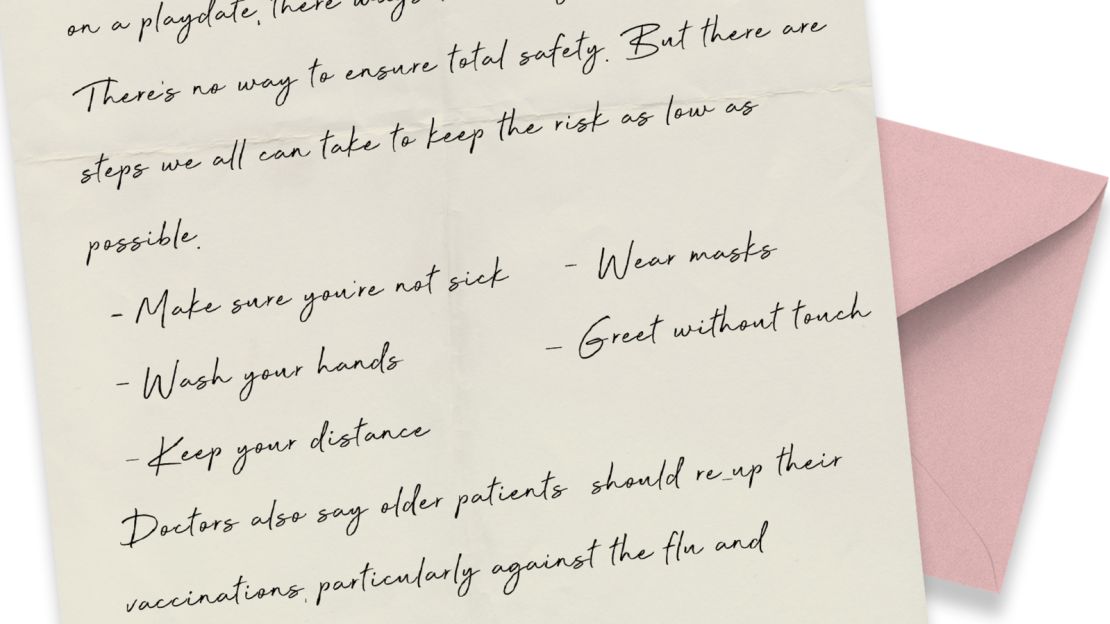 on a playdate, there ways
There's no way to ensure total safety. But there are
steps we all can take to keep the risk as low as
possible.
- Make sure you're not sick
- Wear masks
- Wash your hands
- Greet without touch
- Keep your distance
Doctors also say older patients should re_up their
vaccinations, particularly against the flu and